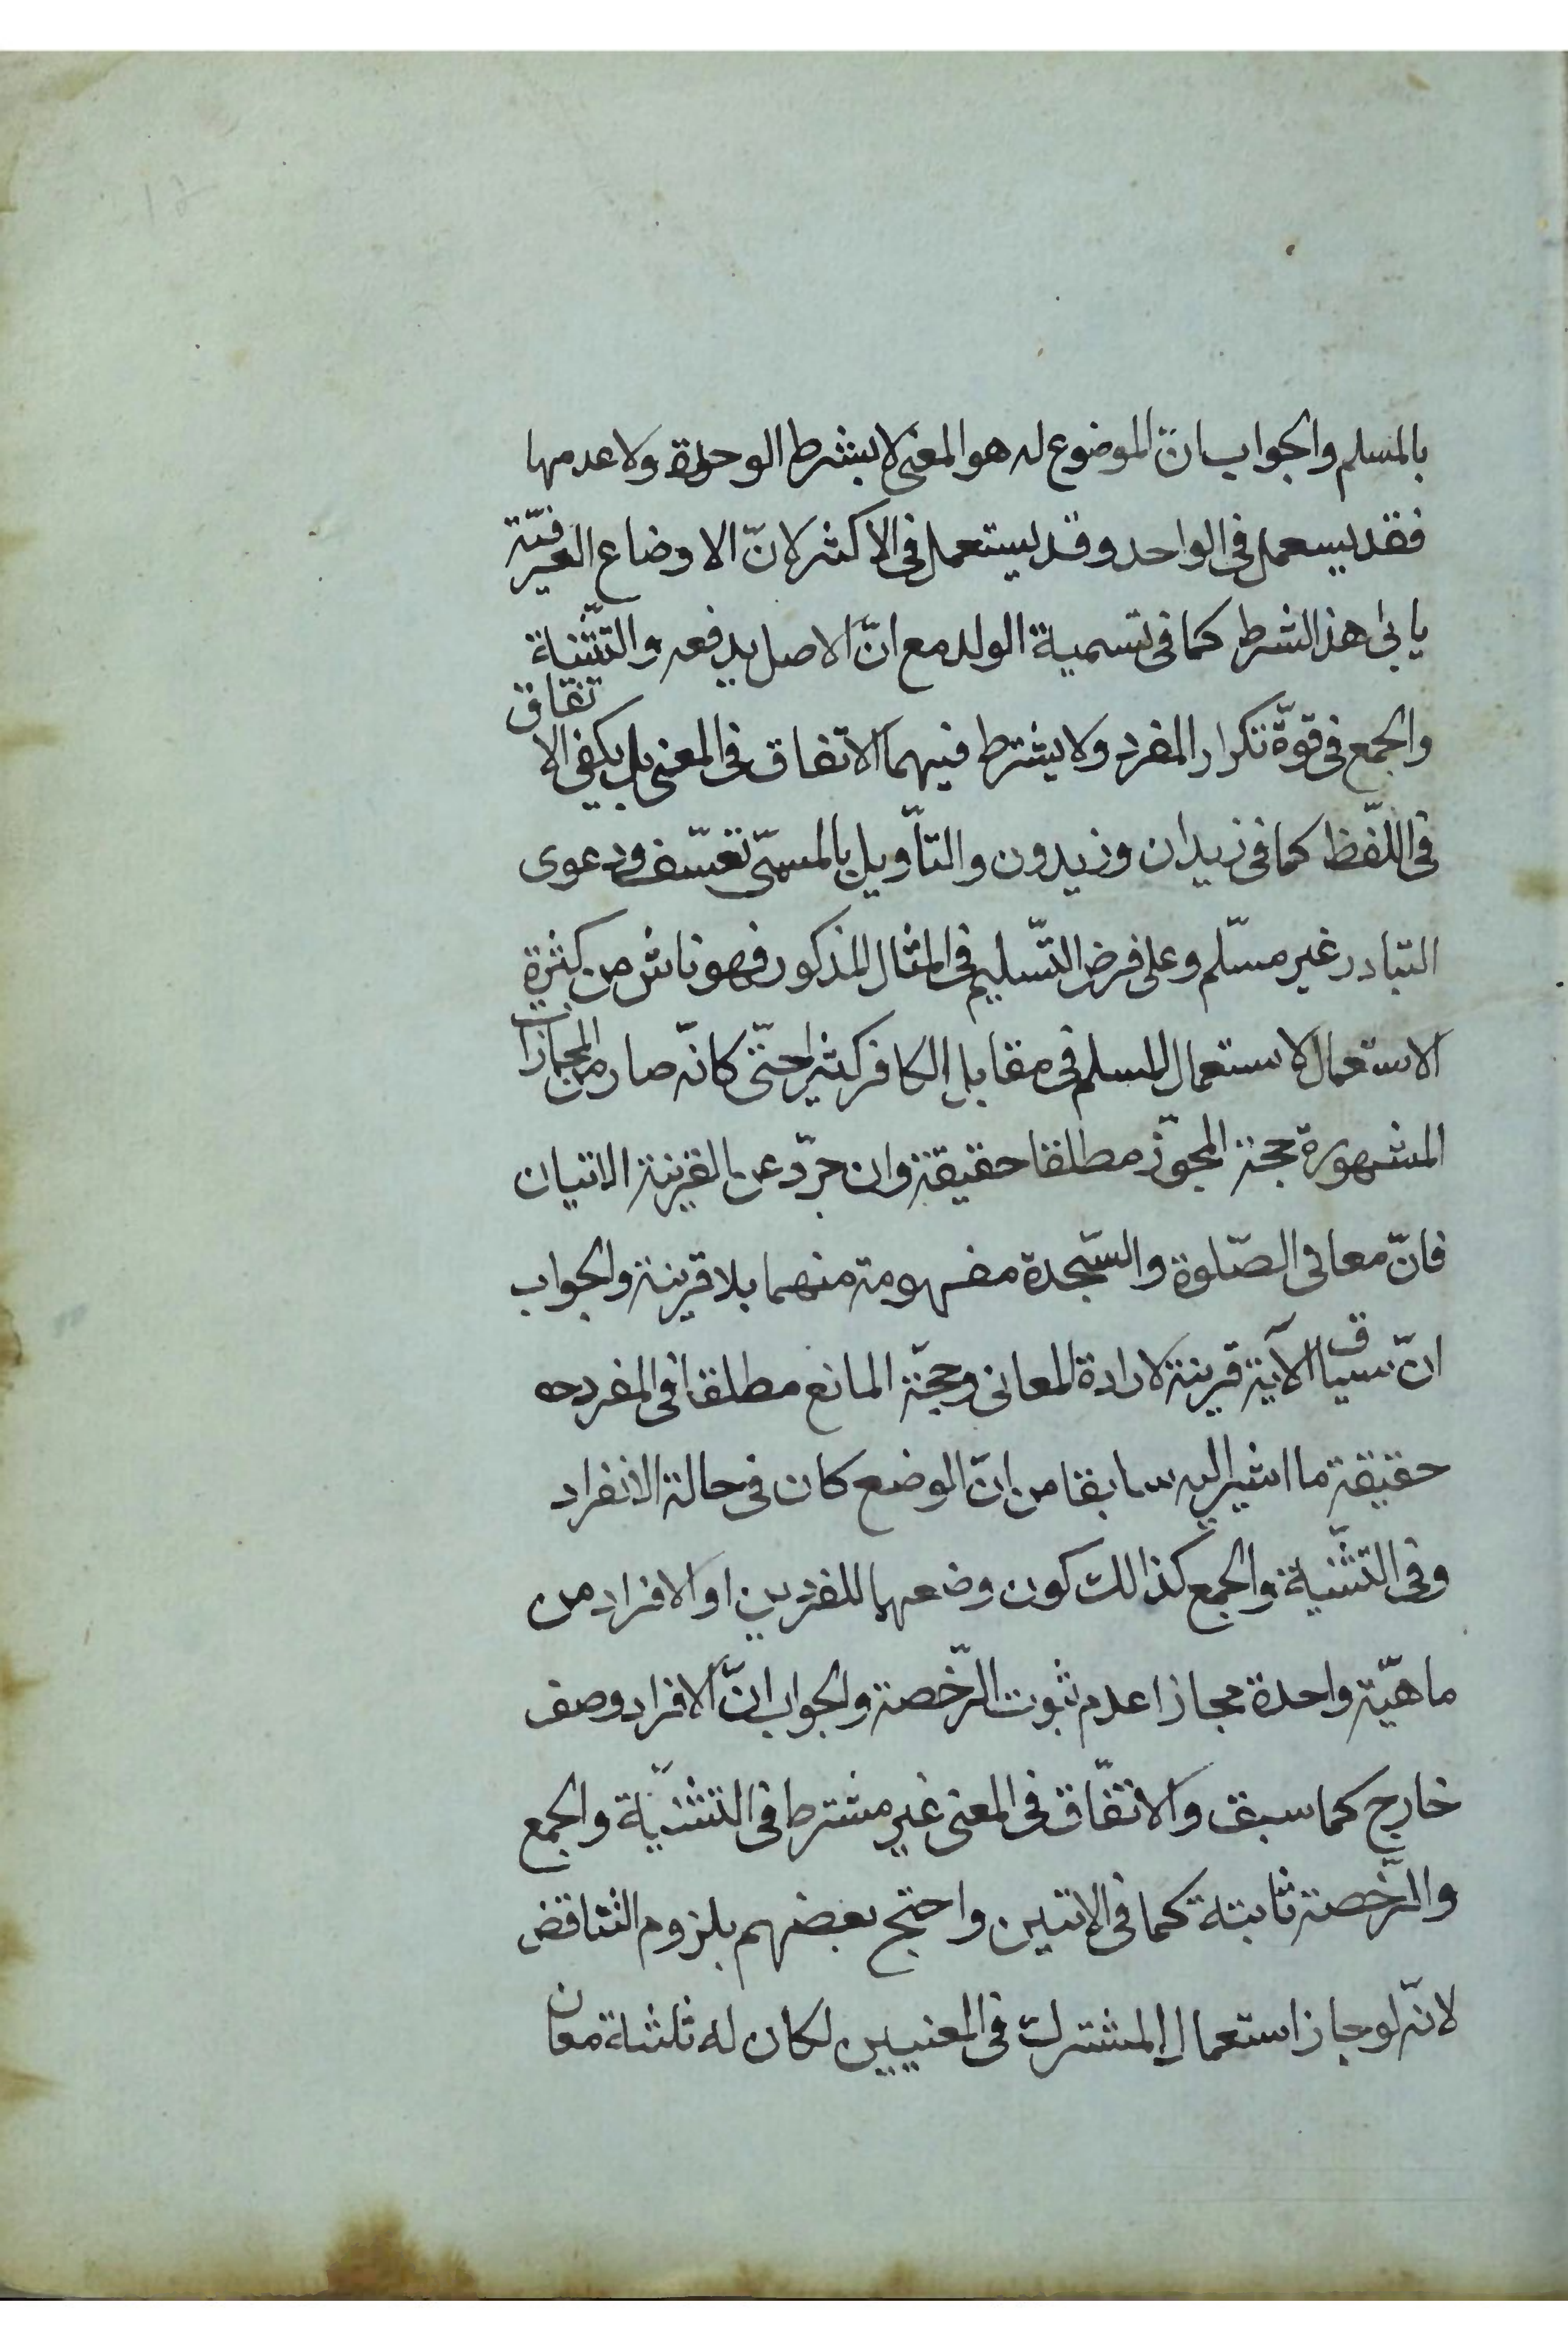 بالمسلم والجواب انّ الموضوع له هو المعنى لا بشرط الوحدة ولا عدمها
فقد يسعمل فى الواحد وقد يستعمل فى الاكثر لانّ الاوضاع العرفيّة
يابى هذ الشرط كما فى تسمية الولد مع انّ الاصل يدفعه والتثنية
والجمع فى قوّة تكرار المفرد ولا يشترط فيهما الاتفاق فى المعنى بل يكفى الاتفاق
فى اللّفظ كما فى زيدان وزيدون والتأويل بالمسمّى تعسّف ودعوى
التبادر غير مسلّم وعلى فرض التّسليم فى المثال المذكور فهو ناش من كثرة
الاستعمال لاستعمال المسلم فى مقابل الكافر كثيرا حتّى كانّه صار من المجازات
المشهورة حجة المجوّز مطلقا حقيقة وان جرّد عن القرينة الاتيان
فانّ معانى الصّلوة والسّجدة مفهومة منهما بلا قرينة والجواب
انّ سياق الآية قرينة لارادة المعانى وحجّة المانع مطلقا فى المفرد
حقيقة ما اشير اليه سابقا من انّ الوضع كان فى حالة الانفراد
وفى التثنية والجمع كذالك كون وضعهما للفردين او الافراد من
ماهيّة واحدة مجازا عدم ثبوت الرّخصة والجواب انّ الافراد وصف
خارج كما سبق والاتفّاق فى المعنى غير مشترط فى التثنيّة والجمع
والرّخصة ثابتة كما فى الاتيين واحتج بعضهم بلزوم التناقض
لانّه لو جاز استعمال المشترك فى المعنيين لكان له ثلثة معان